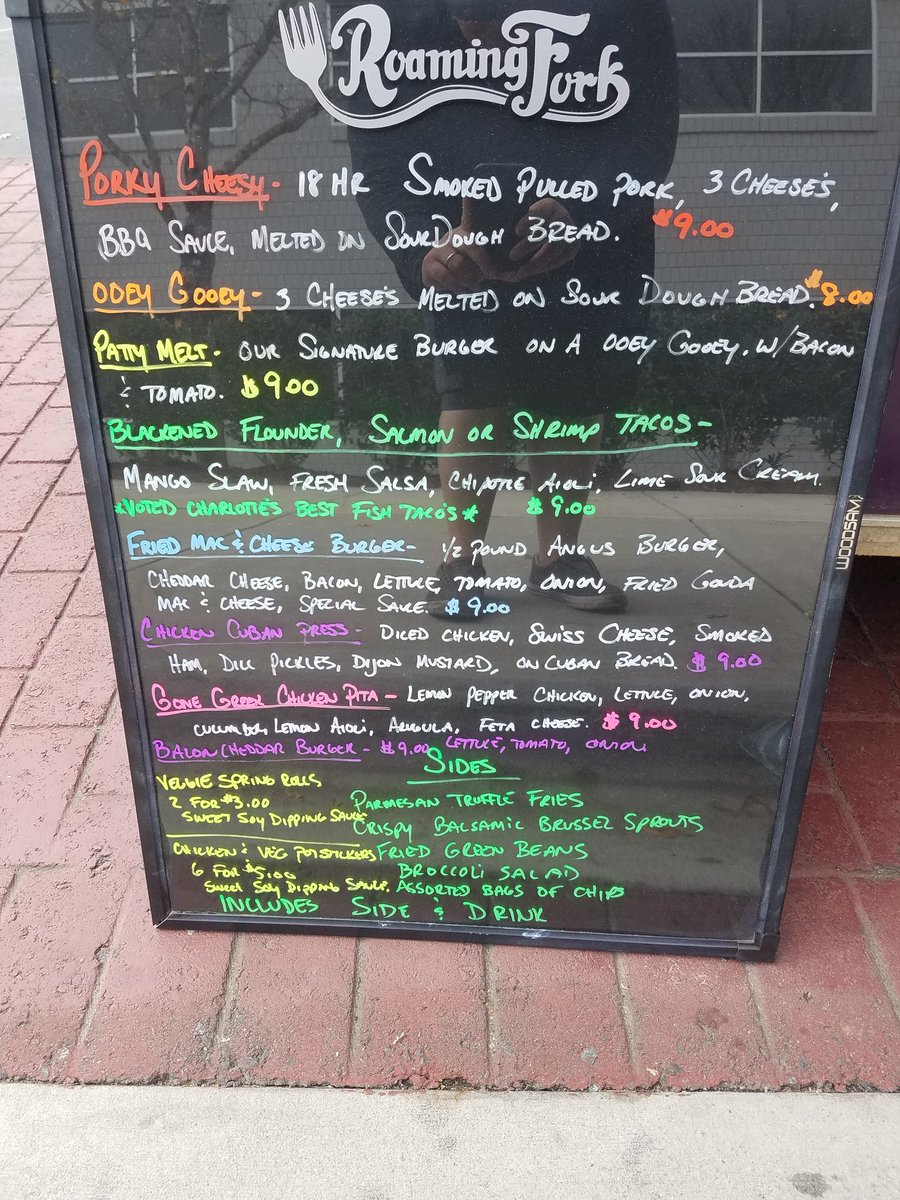 Roaming Fork
PORKY CHEESY - 18 HR SMOKED PULLED PORK, 3 CHEESE'S,
BBQ SAUCE, MELTED ON SOURDOUGH BREAD. $9.00
OOEY GOOEY - 3 CHEESE'S MELTED ON SOUR DOUGH BREAD. $8.00
PATTY MELT - OUR SIGNATURE BURGER ON A OOEY GOOEY. W/BACON
& TOMATO. $9.00
BLACKENED FLOUNDER, SALMON OR SHRIMP TACOS -
MANGO SLAW, FRESH SALSA, CHIPOTLE AIOLI, LIME SOUR CREAM.
*VOTED CHARLOTTE'S BEST FISH TACO'S* $9.00
FRIED MAC & CHEESE BURGER - 1/2 POUND ANGUS BURGER,
CHEDDAR CHEESE, BACON, LETTUCE, TOMATO, ONION, FRIED GOUDA
MAC & CHEESE, SPECIAL SAUCE. $9.00
CHICKEN CUBAN PRESS - DICED CHICKEN, SWISS CHEESE, SMOKED
HAM, DILL PICKLES, DIJON MUSTARD, ON CUBAN BREAD. $9.00
GONE GREEK CHICKEN PITA - LEMON PEPPER CHICKEN, LETTUCE, ONION,
CUCUMBER, LEMON AIOLI, ARUGULA, FETA CHEESE. $9.00
BACON CHEDDAR BURGER - $9.00 LETTUCE, TOMATO, ONION
VEGGIE SPRING ROLLS
2 FOR $3.00
SWEET SOY DIPPING SAUCE
CHICKEN & VEG POTSTICKERS
6 FOR $5.00
SWEET SOY DIPPING SAUCE.
SIDES
PARMESAN TRUFFLE FRIES
CRISPY BALSAMIC BRUSSEL SPROUTS
FRIED GREEN BEANS
BROCCOLI SALAD
ASSORTED BAGS OF CHIPS
INCLUDES SIDE & DRINK
WOODSAM